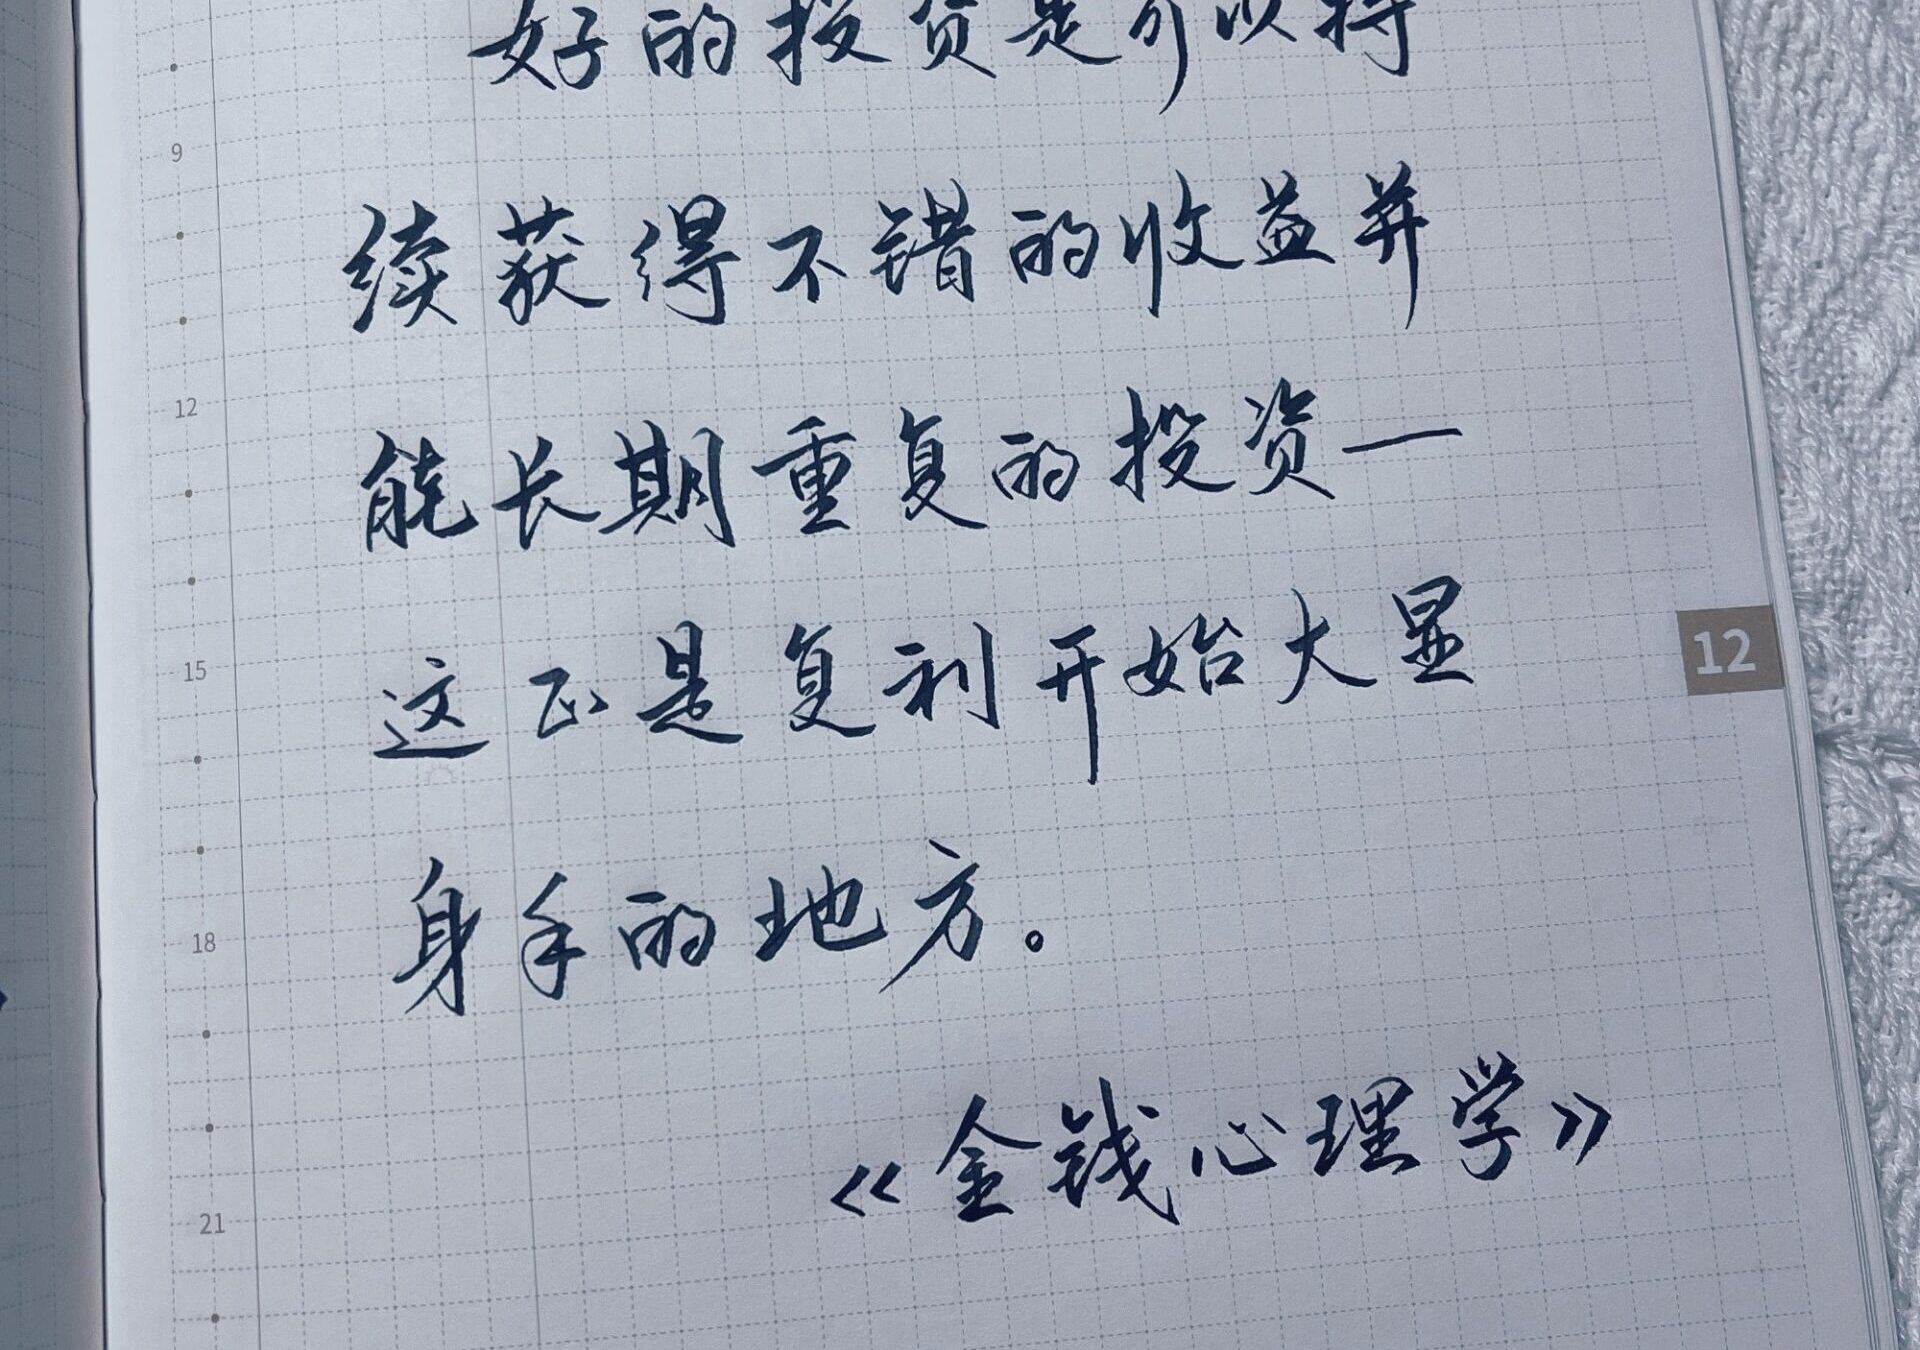 好的投资是可以持
9
续获得不错的收益并
12
能长期重复的投资—
12
15
这正是复利开始大显
18
身手的地方。
《金钱心理学》
21